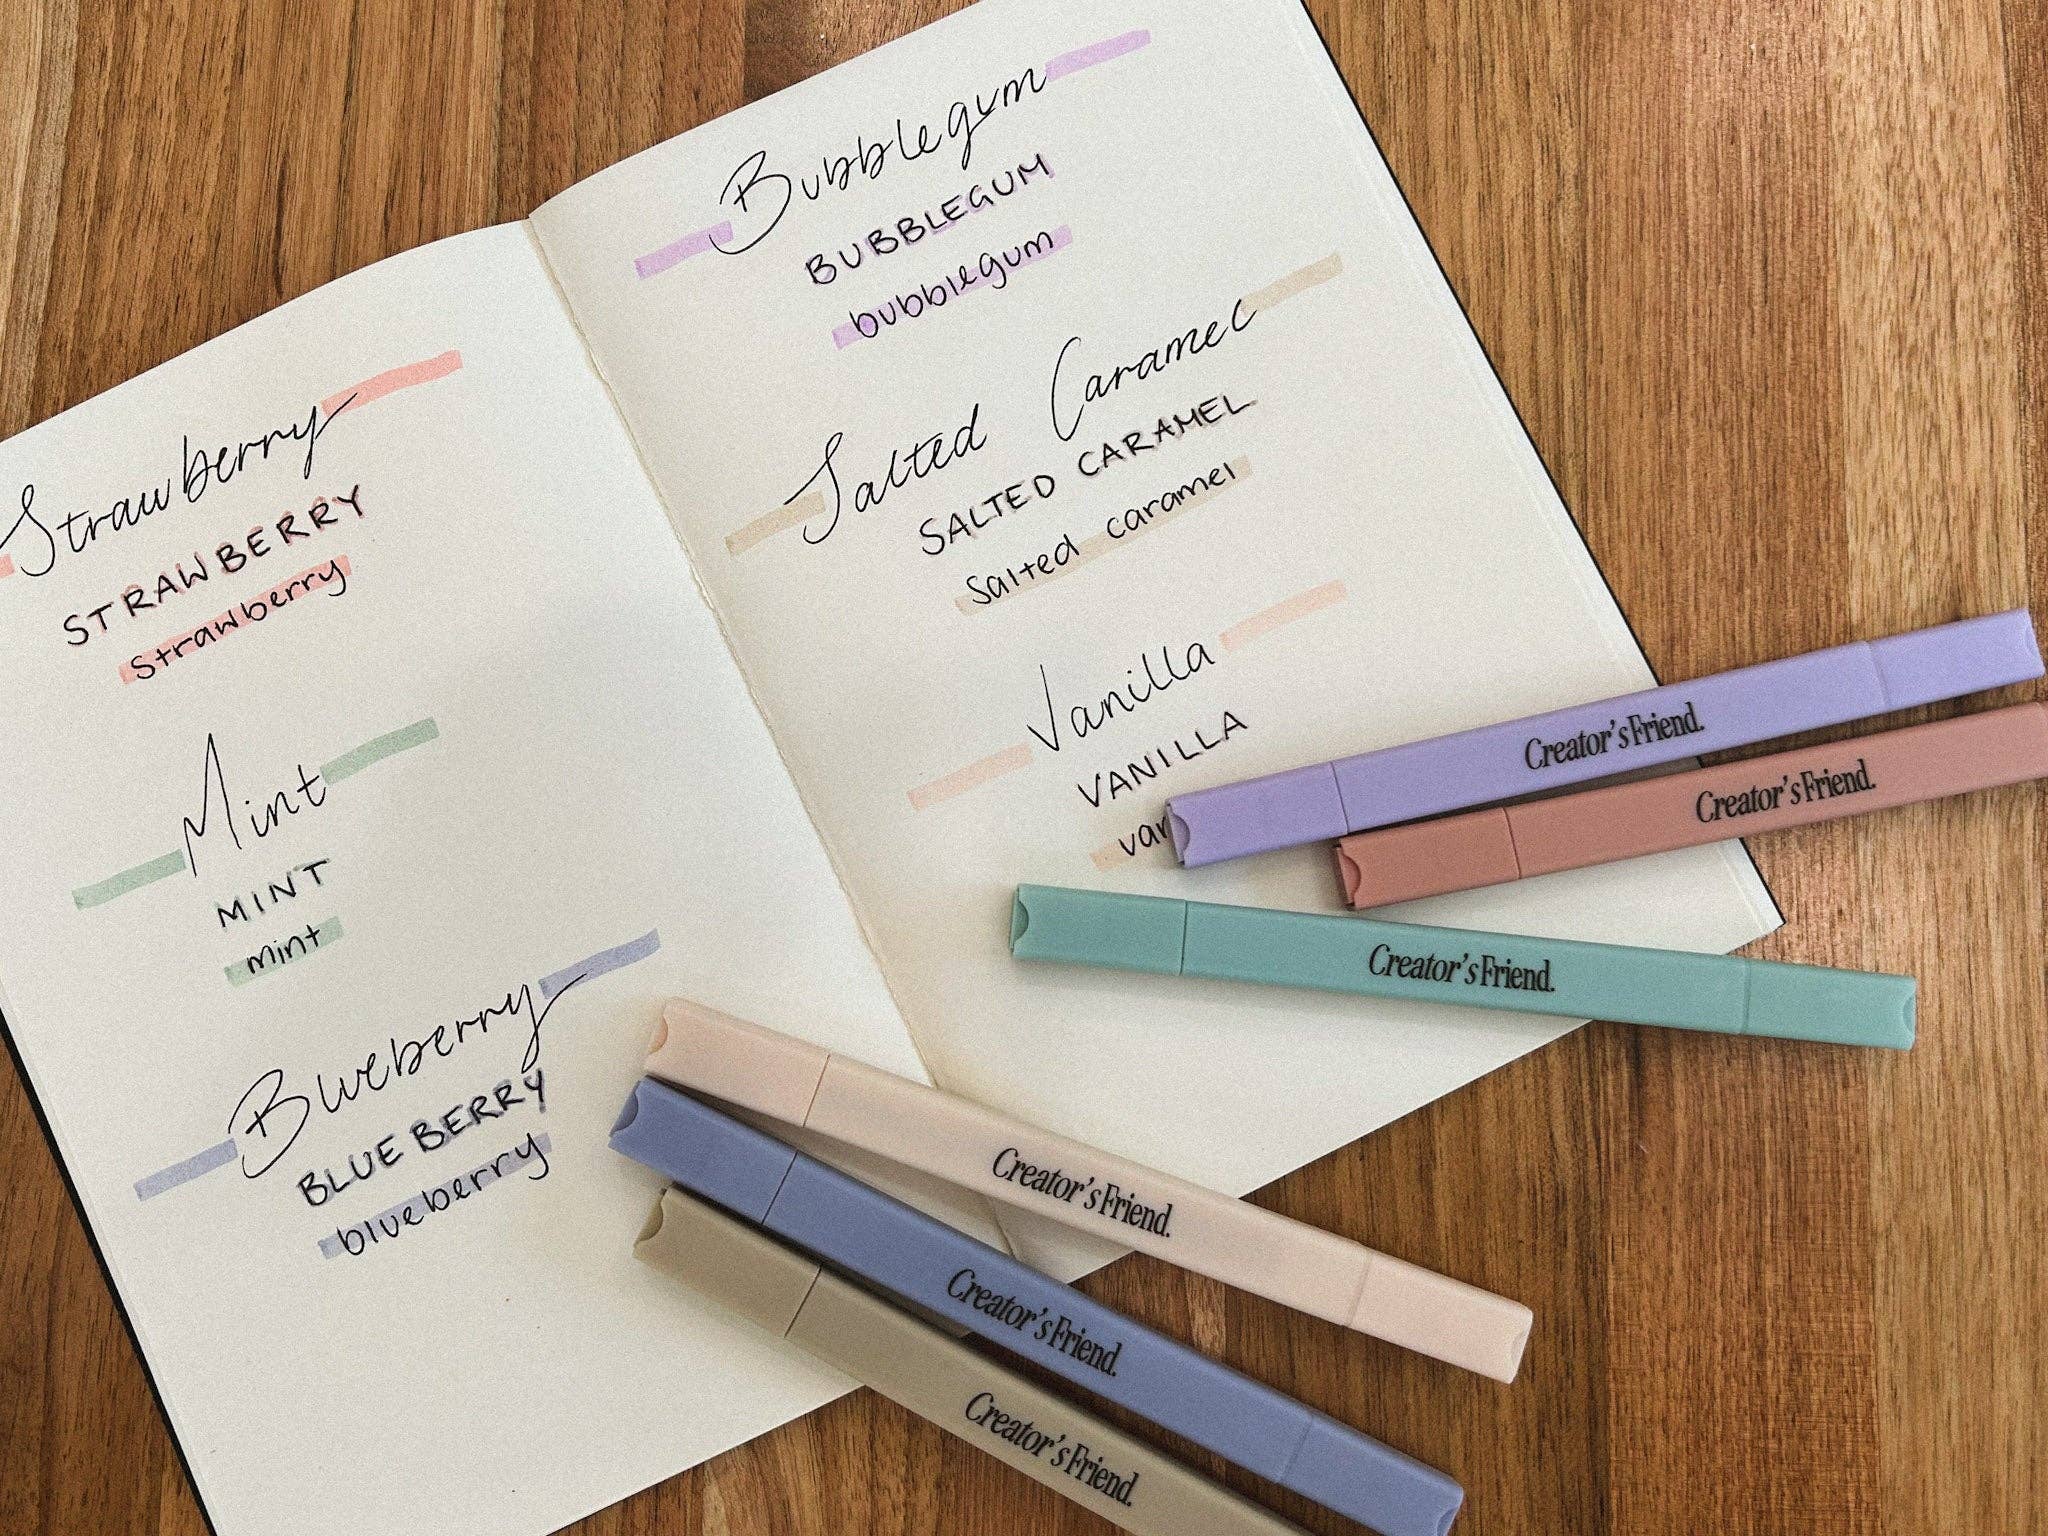 Strawberry
STRAWBERRY
strawberry
Mint
MINT
mint
Blueberry
BLUEBERRY
blueberry
Bubblegum
BUBBLEGUM
bubblegum
Salted Caramel
SALTED CARAMEL
Salted caramel
Vanilla
VANILLA
van
Creator's Friend.
Creator's Friend.
Creator's Friend.
Creator's Friend.
Creator's Friend.
Creator's Friend.